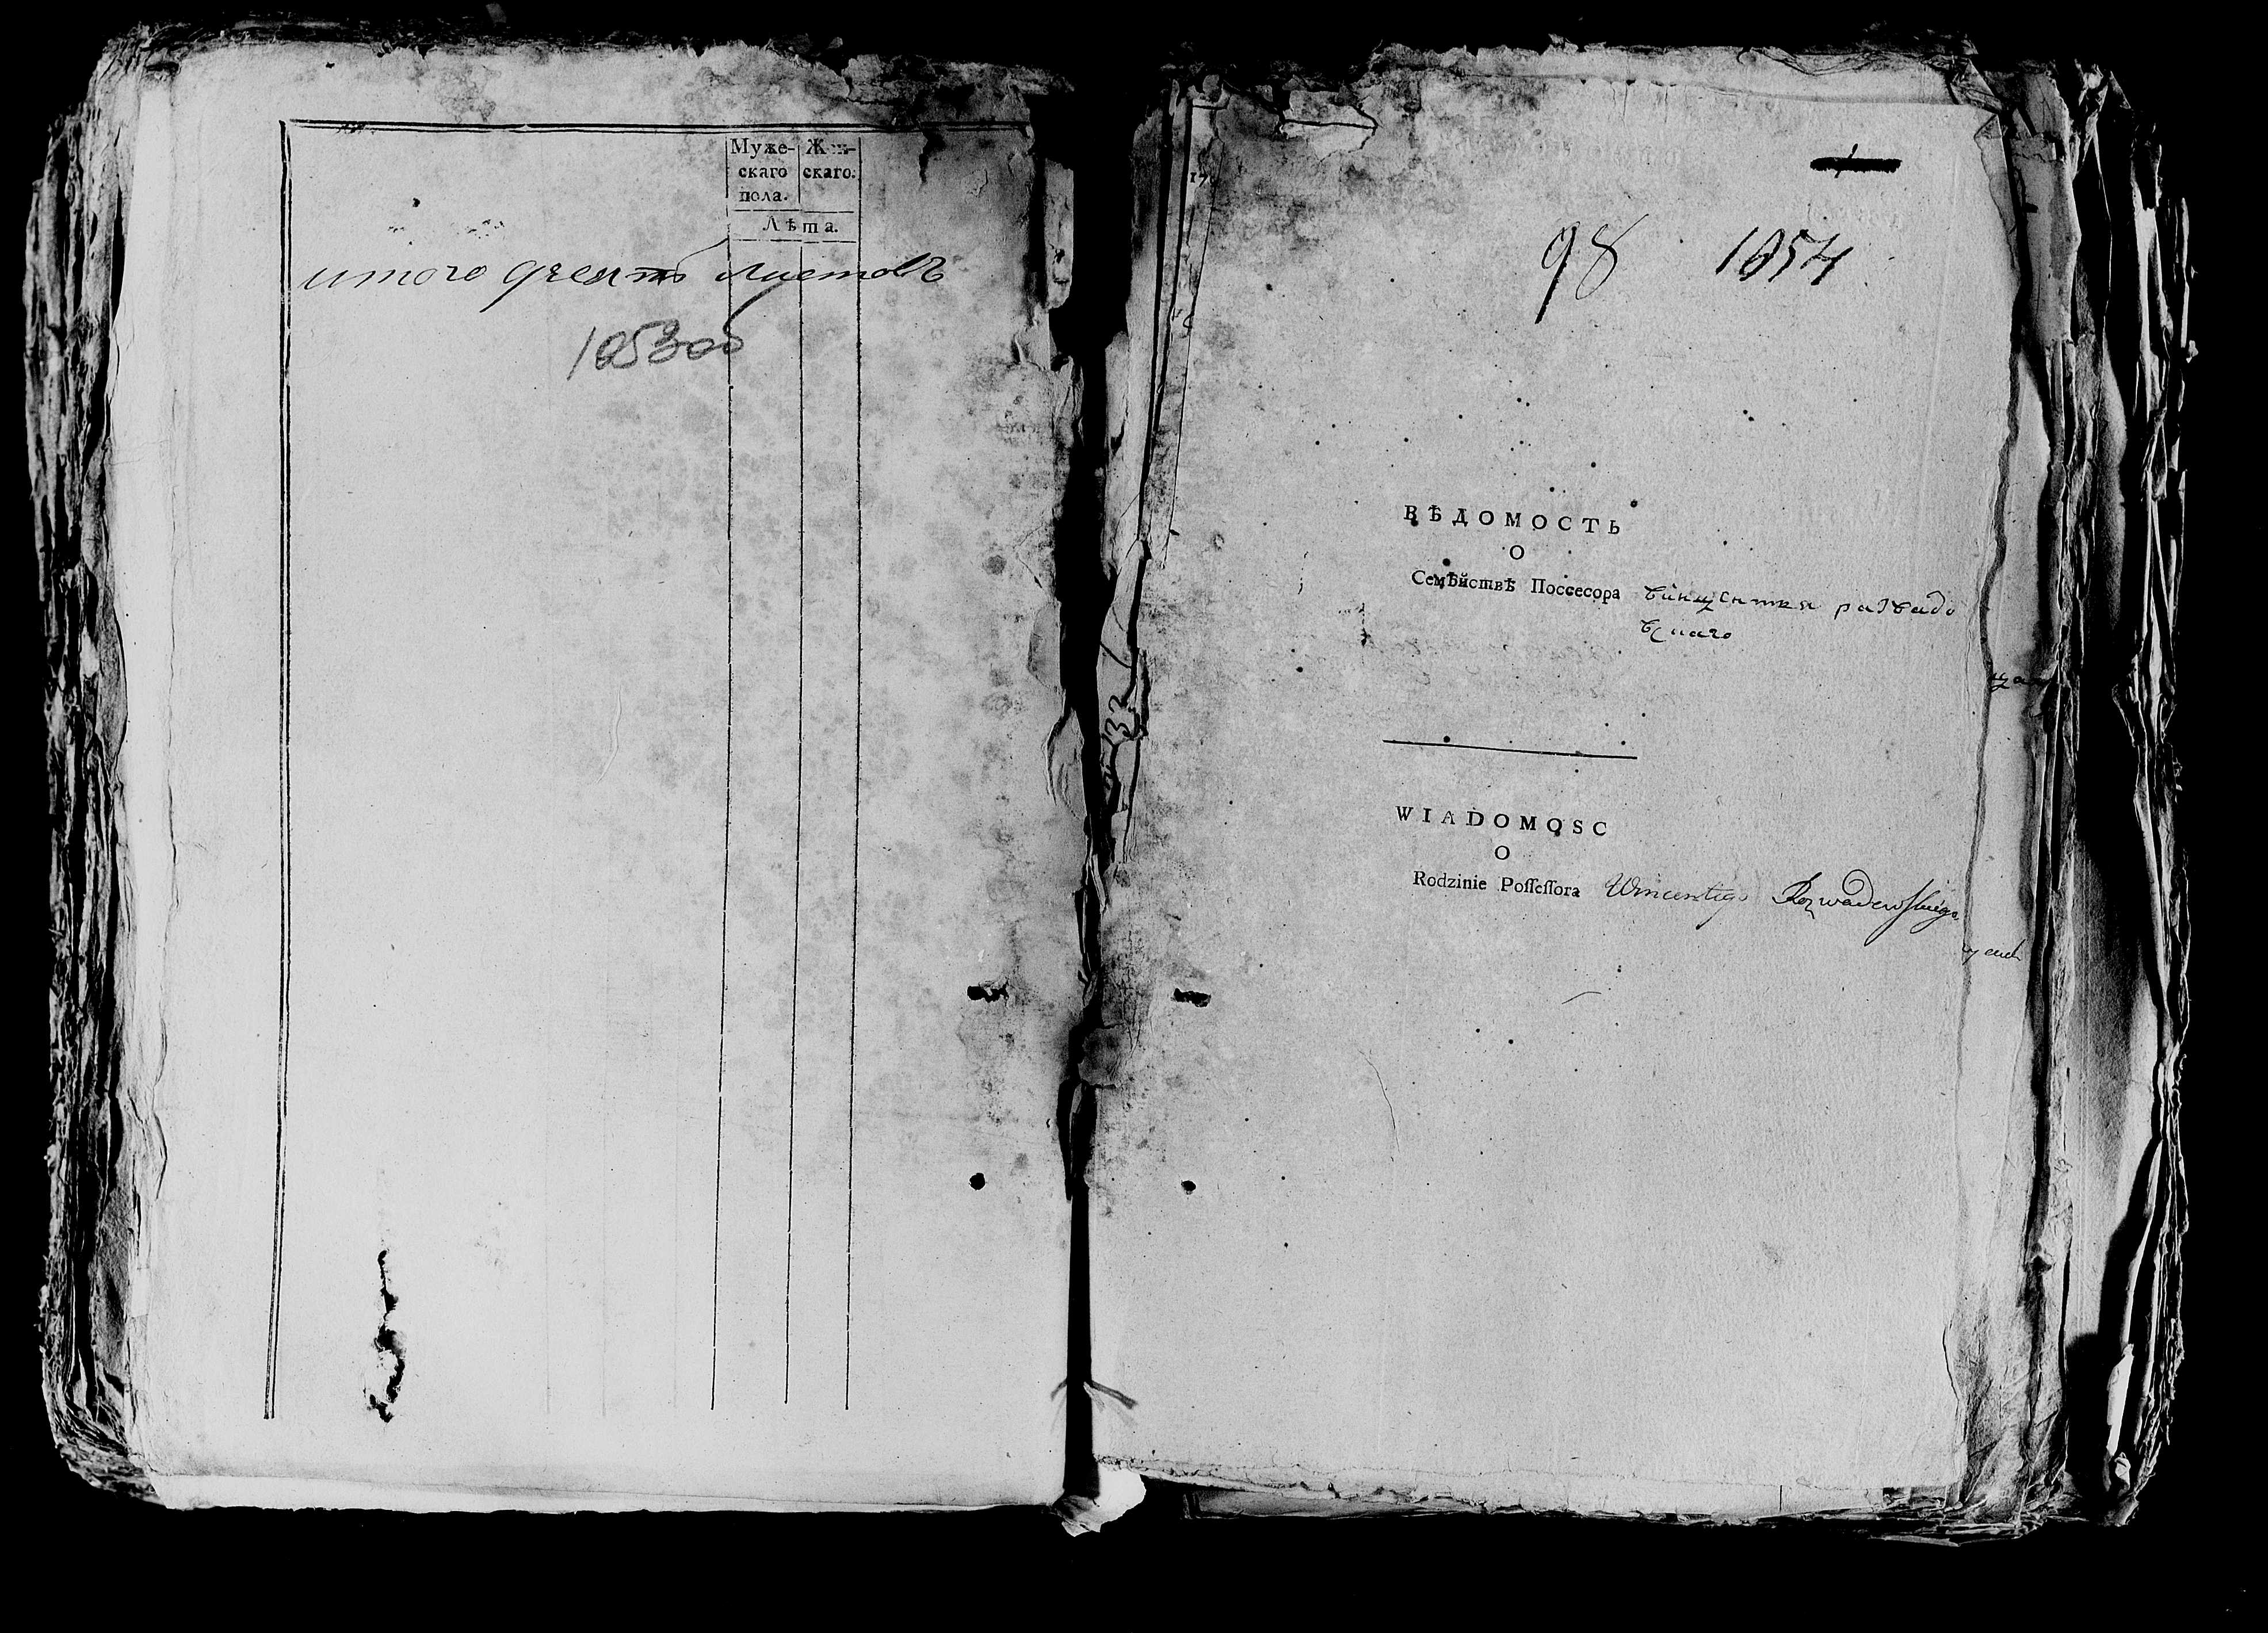 Муже-
скаго
пола.
Жен-
скаго.
Лѣта.
итого десять листовъ
1053 об
98 1054
ВѢДОМОСТЬ
О
Семѣйствѣ Поссесора винцентия развадо
вскаго
WIADOMOSC
O
Rodzinie Poſſeſſora Wincentego Rozwadowſkiego